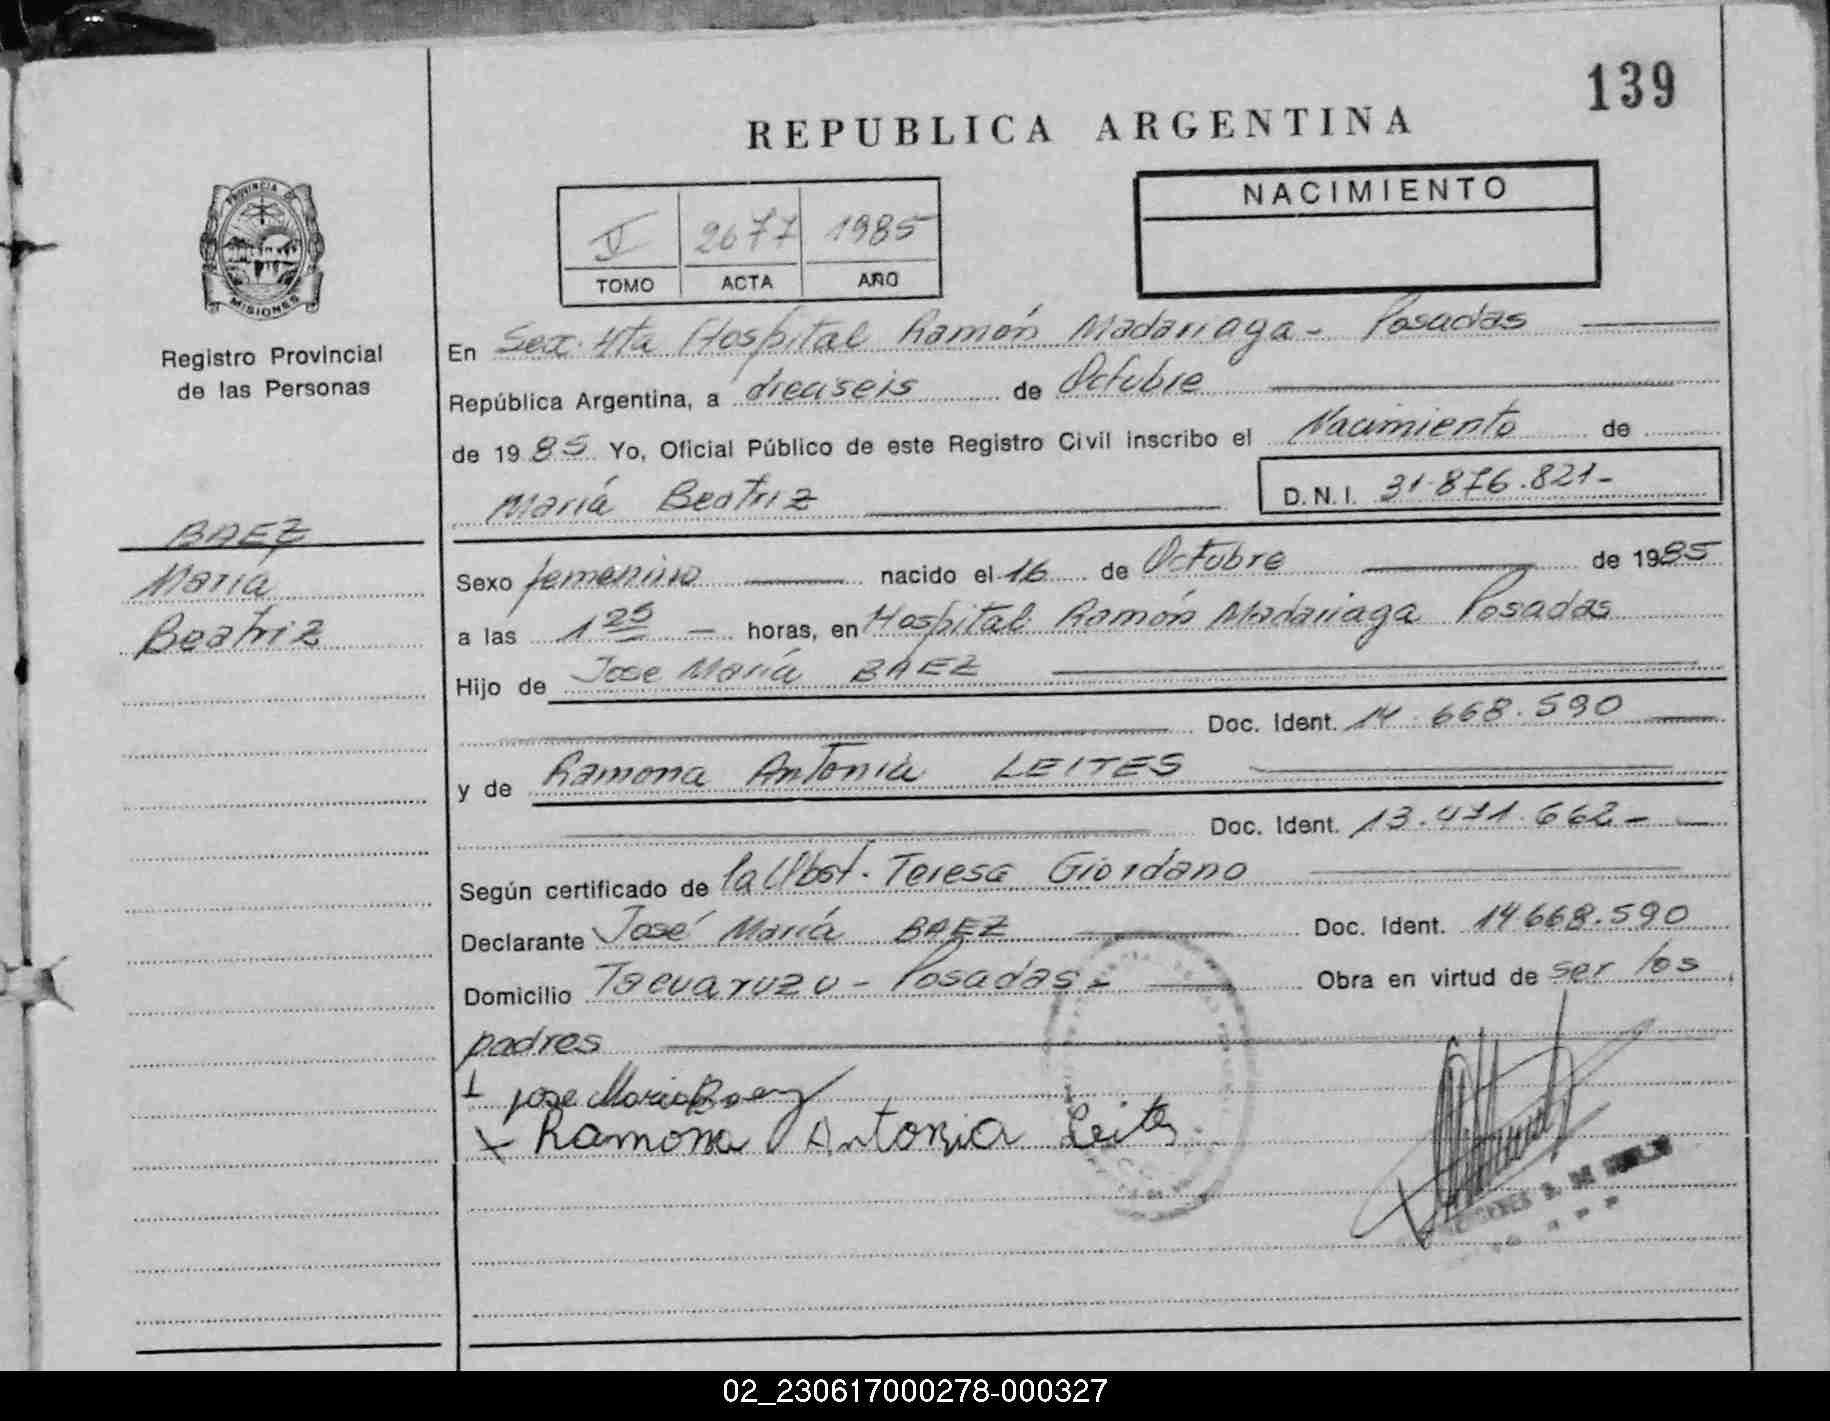 139
REPUBLICA ARGENTINA
NACIMIENTO
V 2677 1985
TOMO ACTA AÑO
PROVINCIA DE
MISIONES
Registro Provincial
de las Personas
BAEZ
María
Beatriz
En Hospital Ramón Madariaga - Posadas
República Argentina, a dieciseis de Octubre
de 1985 Yo, Oficial Público de este Registro Civil inscribo el Nacimiento de
María Beatriz D.N.I. 31.876.821-
Sexo femenino nacido el 16 de Octubre de 1985
a las 1 25 - horas, en Hospital Ramón Madariaga Posadas
Hijo de Jose María BAEZ
Doc. Ident. 14.668.590
y de Ramona Antonia LEITES
Doc. Ident. 13.471.662-
Según certificado de la Obst. Teresa Giordano
Declarante José María BAEZ Doc. Ident. 14668.590
Domicilio Tacuaruzu - Posadas - Obra en virtud de ser los
padres
Jose Maria Baez
x Ramona Antonia Leites
02_230617000278-000327